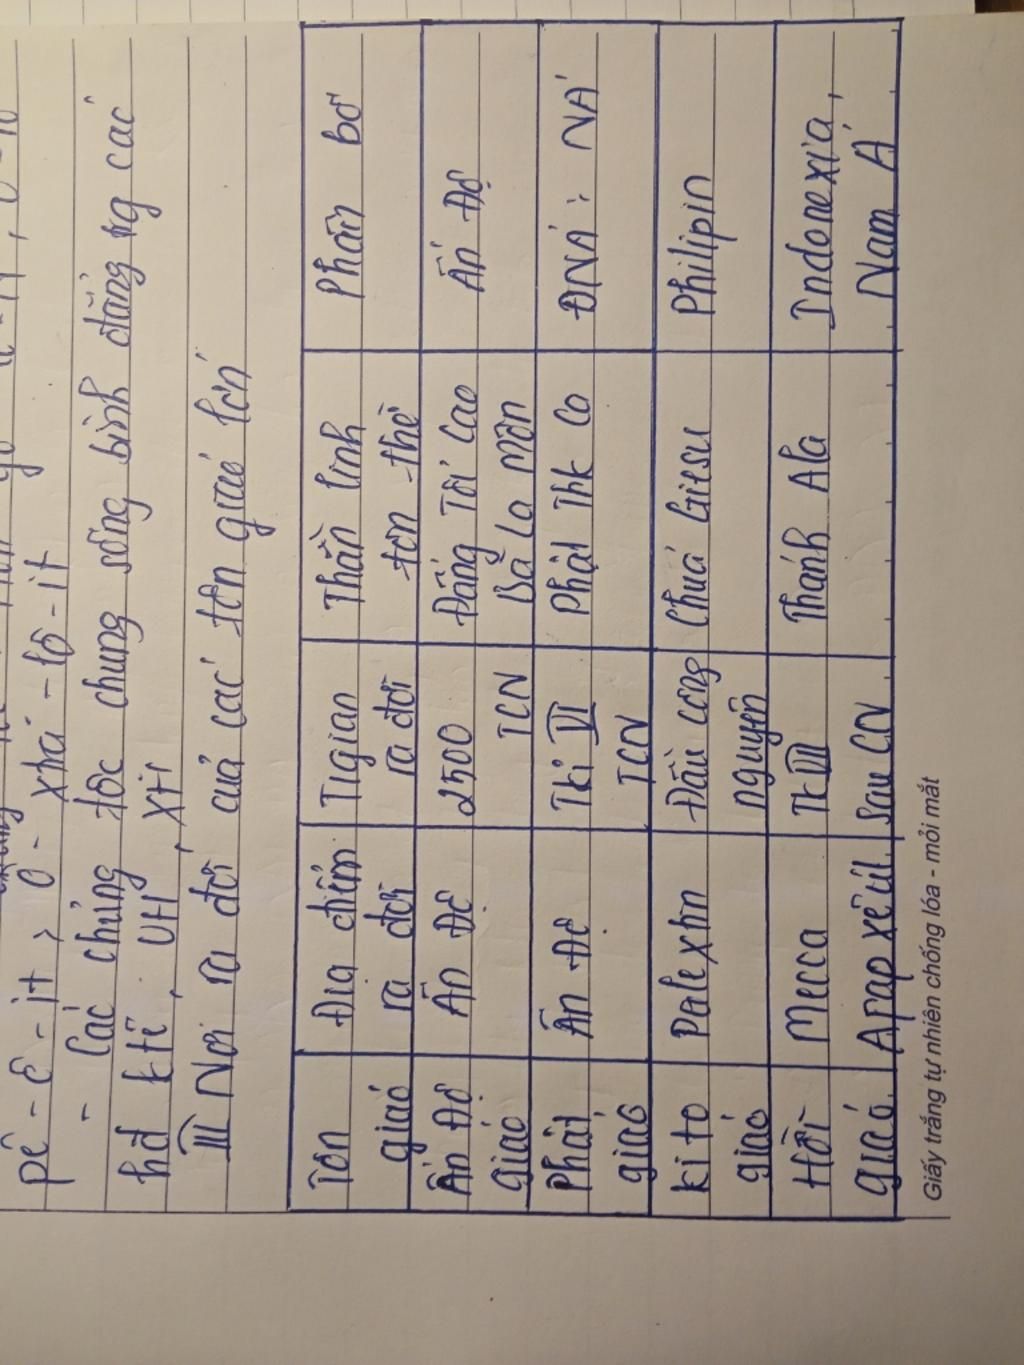 pê - ê - it > Ô - xtra - lô - it
- Các chủng tộc chung sống bình đẳng tg các
hđ ktế, VH, XH
III Nơi ra đời của các tôn giáo lớn
Tôn giáo | Địa điểm ra đời | Tgian ra đời | Thần linh tôn thờ | Phân bố
Ấn Độ giáo | Ấn Độ | 2500 TCN | Đấng Tối Cao Bà La Môn | Ấn Độ
Phật giáo | Ấn Độ | Tkỉ VI TCN | Phật Thk Ca | ĐNÁ; NÁ
ki to giáo | Palextin | Đầu công nguyên | Chúa Giesu | Philipin
Hồi giáo | Mecca Arap xêút | Tk VII sau CN | Thánh Ala | Indonexia, Nam Á
Giấy trắng tự nhiên chống lóa - mỏi mắt